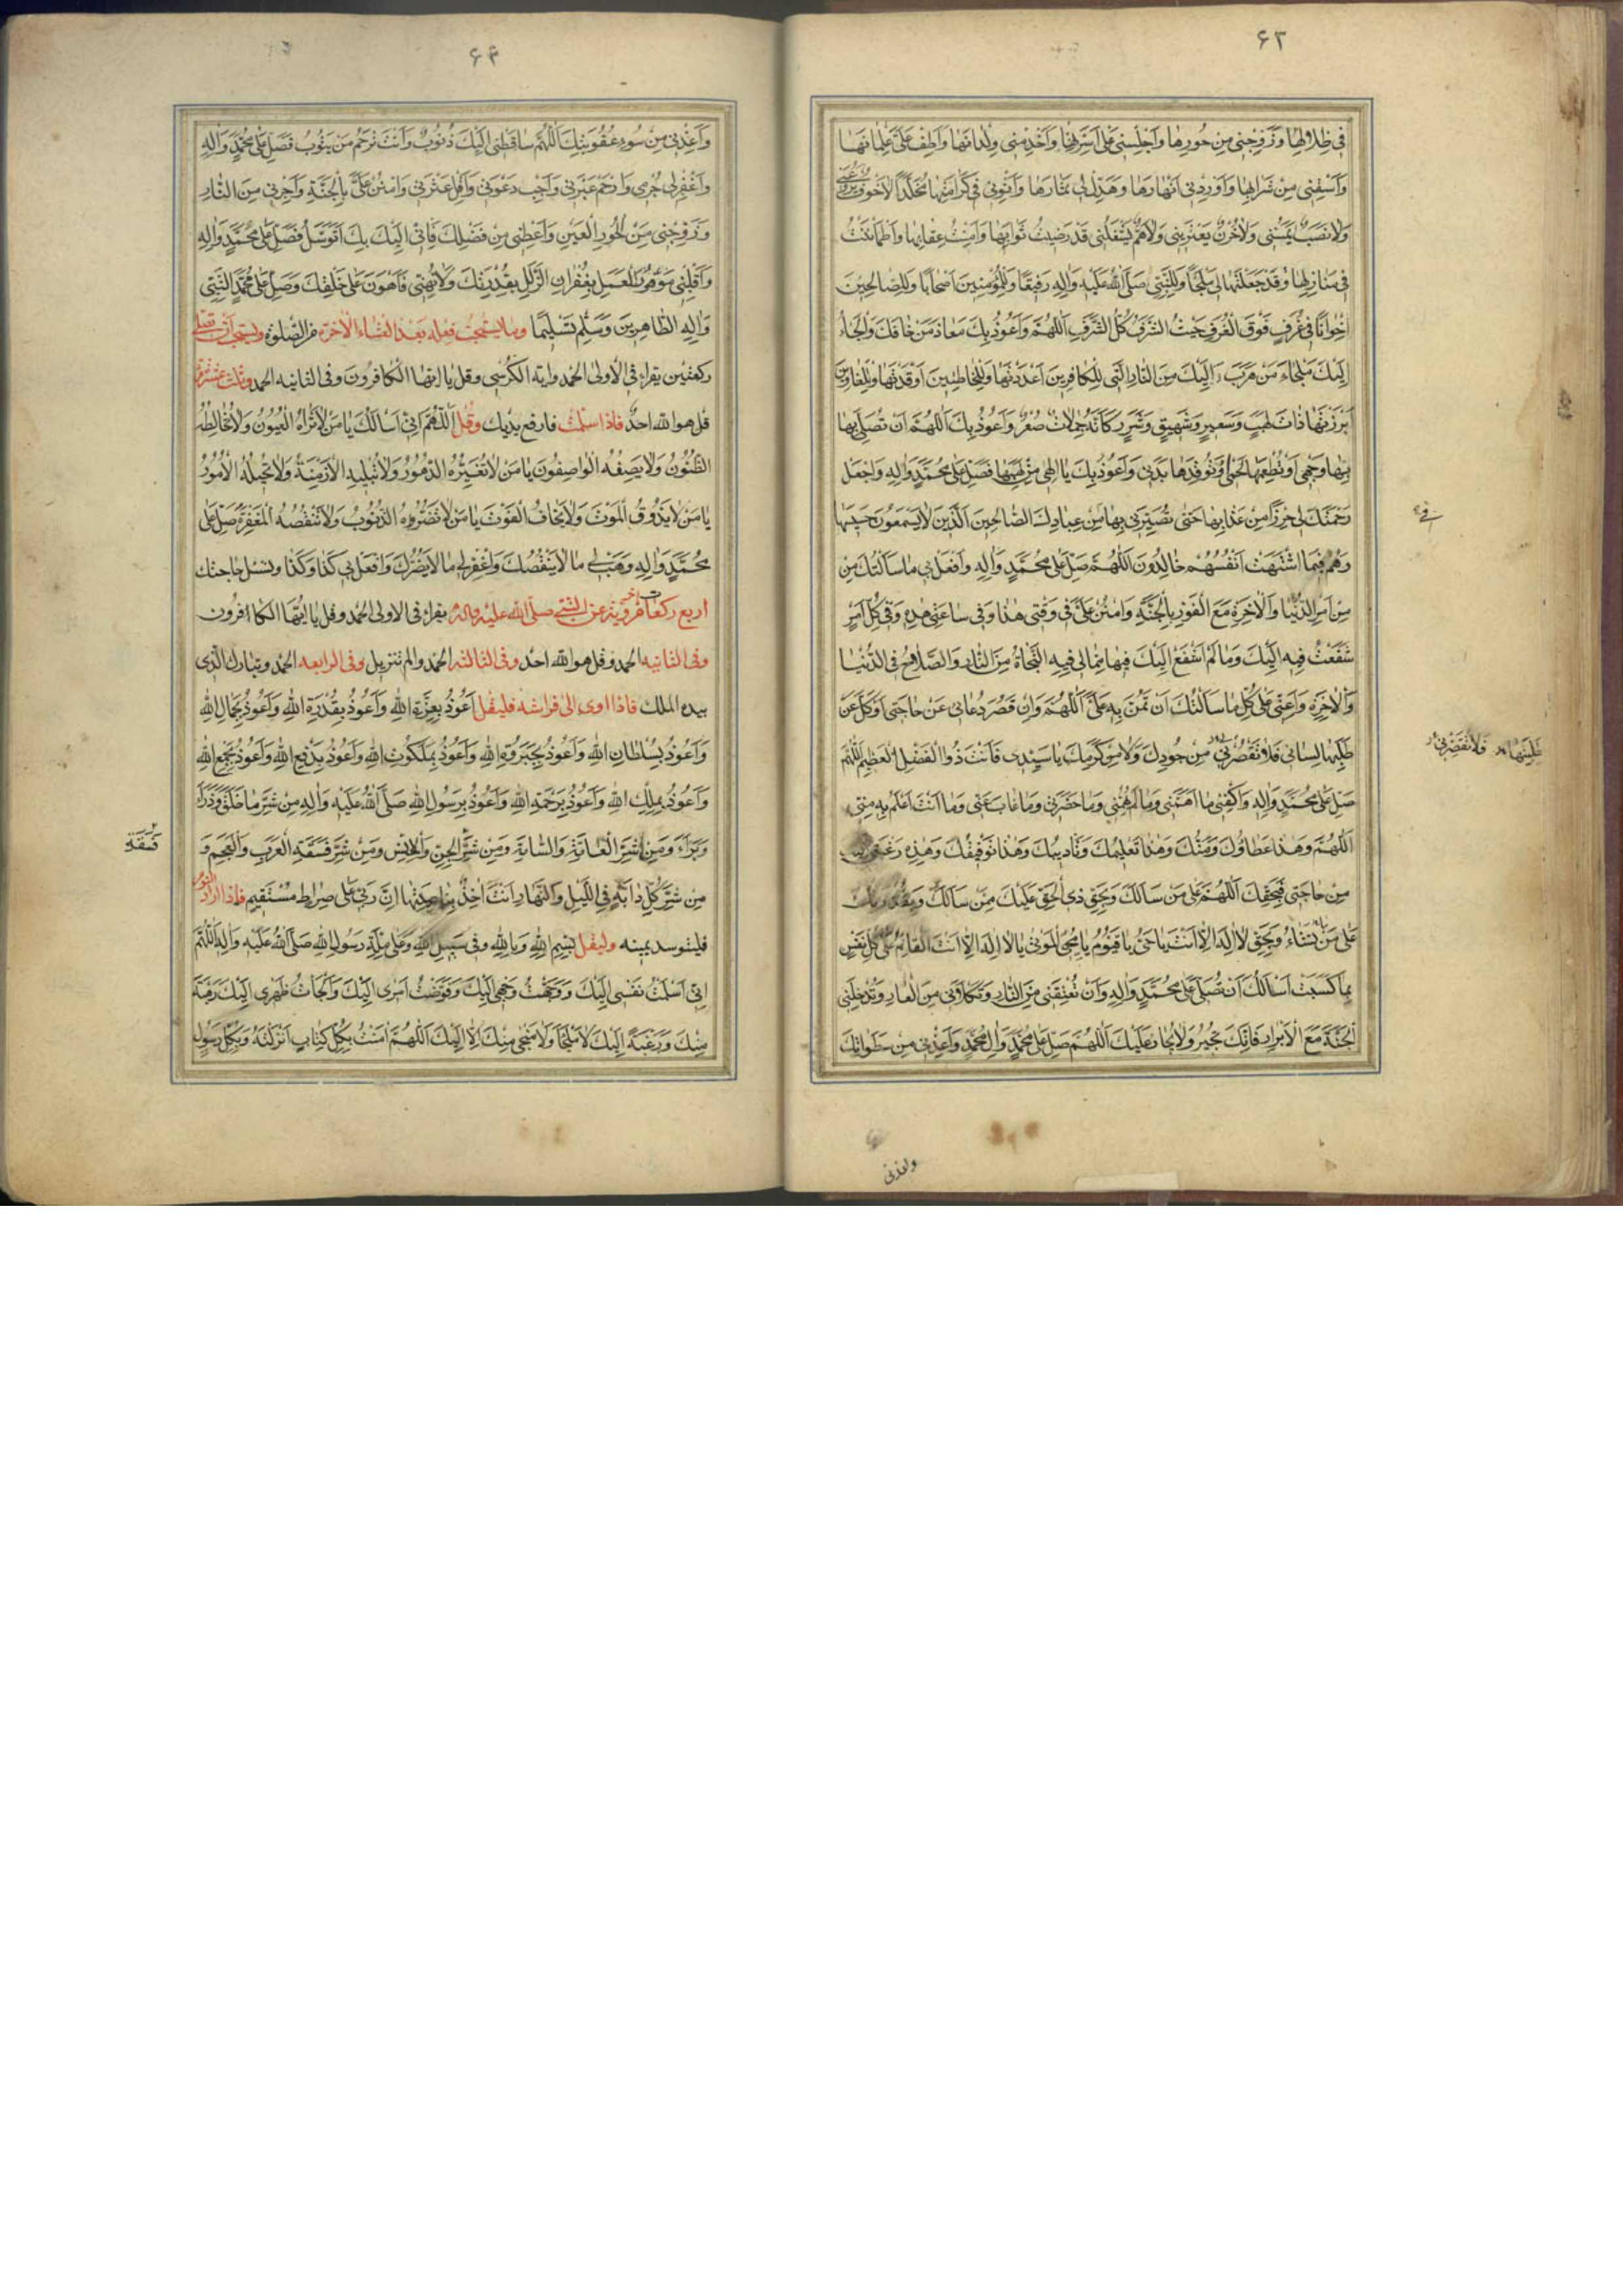 ۶۳
فى ظلالها وَزَوِّجْنى مِنْ حُورِها وَاَجْلِسْنى عَلى اَسِرَّتِها وَاَخْدِمْنى وِلْدانَها وَاَطِفْ عَلَىَّ غِلْمانَها
وَاَسْقِنى مِنْ شَرابِها وَاَوْرِدْنى اَنْهارَها وَهَدِّلْ لى ثِمارَها وَاثْوِنى فى كَرامَتِها مُخَلَّدًا لا خَوْفٌ
وَلا نَصَبٌ يَمَسُّنى وَلا حُزْنٌ يَعْتَرينى وَلا هَمٌّ يَشْغَلُنى قَدْ رَضيتُ ثَوابَها وَاَمِنْتُ عِقابَها وَاطْمَأْنَنْتُ
فى مَنازِلِها وَقَدْ جَعَلْتَها لى مَلْجَأً وَلِلنَّبِىِّ صَلَّى اللهُ عَلَيْهِ وَالِهِ رَفيقًا وَلِلْمُؤْمِنينَ اَصْحابًا وَلِلصّالِحينَ
اِخْوانًا فى غُرَفٍ فَوْقَ الْغُرَفِ حَيْثُ الشَّرَفُ كُلُّ الشَّرَفِ اَللّهُمَّ وَاَعُوذُ بِكَ مَعاذَ مَنْ خافَكَ وَاَلْجَأُ
اِلَيْكَ مَلْجَاءَ مَنْ هَرَبَ اِلَيْكَ مِنَ النّارِ الَّتى لِلْكافِرينَ اَعْدَدْتَها وَلِلْخاطِئينَ اَوْقَدْتَها وَلِلْغاوينَ
اَبْرَزْتَها ذاتَ لَهَبٍ وَسَعيرٍ وَشَهيقٍ وَشَرَرٍ كَاَنَّهُ جِمالاتٌ صُفْرٌ وَاَعُوذُ بِكَ اَللّهُمَّ اَنْ تُصْلِىَ بِها
بِها وَجْهى اَوْ تُطْعِمَها لَحْمى اَوْ تُوقِدَها بَدَنى وَاَعُوذُ بِكَ يا اِلهى مِنْ لَهَبِها فَصَلِّ عَلى مُحَمَّدٍ وَالِهِ وَاجْعَلْ
رَحْمَتَكَ لى حِرْزًا مِنْ عَذابِها حَتّى تُصَيِّرَنى بِها مِنْ عِبادِكَ الصّالِحينَ الَّذينَ لا يَسْمَعُونَ حَسيسَها
وَهُمْ فيمَا اشْتَهَتْ اَنْفُسُهُمْ خالِدُونَ اَللّهُمَّ صَلِّ عَلى مُحَمَّدٍ وَالِهِ وَافْعَلْ بى ما سَاَلْتُكَ مِنْ
مِنْ اَمْرِ الدُّنْيا وَالْاخِرَةِ مَعَ الْفَوْزِ بِالْجَنَّةِ وَامْنُنْ عَلَىَّ فى وَقْتى هذا وَفى ساعَتى هذِهِ وَفى كُلِّ اَمْرٍ
شَفَعْتُ فيهِ اِلَيْكَ وَما لَمْ اَشْفَعْ اِلَيْكَ فيها مِمّا لى فيهِ النَّجاةُ مِنَ النّارِ وَالصَّلاحُ فى الدُّنْيا
وَالْاخِرَةِ وَاَعِنّى عَلى كُلِّ ما سَاَلْتُكَ اَنْ تَمُنَّ بِهِ عَلَىَّ اَللّهُمَّ وَاِنْ قَصُرَ دُعائى عَنْ حاجَتى اَوْ كَلَّ عَنْ
طَلَبِها لِسانى فَلا تُقْصِرْنى مِنْ جُودِكَ وَلا مِنْ كَرَمِكَ يا سَيِّدى فَاَنْتَ ذُو الْفَضْلِ الْعَظيمِ اَللّهُمَّ
صَلِّ عَلى مُحَمَّدٍ وَالِهِ وَاكْفِنى ما اَهَمَّنى وَما لَمْ يُهِمَّنى وَما حَضَرَنى وَما غابَ عَنّى وَما اَنْتَ اَعْلَمُ بِهِ مِنّى
اَللّهُمَّ وَهذا عَطاؤُكَ وَمَنُّكَ وَهذا تَعْليمُكَ وَتَأْديبُكَ وَهذا تَوْفيقُكَ وَهذِهِ رَغْبَتى
مِنْ حاجَتى فَبِحَقِّكَ اَللّهُمَّ عَلى مَنْ سَاَلَكَ وَبِحَقِّ ذِى الْحَقِّ عَلَيْكَ مِمَّنْ سَاَلَكَ
عَلى مَنْ تَشاءُ وَبِحَقِّ لا اِلهَ اِلّا اَنْتَ يا حَىُّ يا قَيُّومُ يا مُحْيِىَ الْمَوْتى يا لا اِلهَ اِلّا اَنْتَ الْقائِمُ عَلى كُلِّ نَفْسٍ
بِما كَسَبَتْ اَسْاَلُكَ اَنْ تُصَلِّىَ عَلى مُحَمَّدٍ وَالِهِ وَاَنْ تُعْتِقَنى مِنَ النّارِ وَتَكْلَاَنى مِنَ الْعارِ وَتُدْخِلَنى
الْجَنَّةَ مَعَ الْاَبْرارِ فَاِنَّكَ تُجيرُ وَلا يُجارُ عَلَيْكَ اَللّهُمَّ صَلِّ عَلى مُحَمَّدٍ وَالِ مُحَمَّدٍ وَاَعِذْنى مِنْ سَطَواتِكَ
واعذنى
۶۴
وَاَعِذْنى مِنْ سُوءِ عُقُوبَتِكَ اَللّهُمَّ ساقَتْنى اِلَيْكَ ذُنُوبٌ وَاَنْتَ تَرْحَمُ مَنْ يَتُوبُ فَصَلِّ عَلى مُحَمَّدٍ وَالِهِ
وَاغْفِرْ لى جُرْمى وَارْحَمْ عَبْرَتى وَاَجِبْ دَعْوَتى وَاَقِلْ عَثْرَتى وَامْنُنْ عَلَىَّ بِالْجَنَّةِ وَاَجِرْنى مِنَ النّارِ
وَزَوِّجْنى مِنَ الْحُورِ الْعينِ وَاَعْطِنى مِنْ فَضْلِكَ فَاِنّى اِلَيْكَ بِكَ اَتَوَسَّلُ فَصَلِّ عَلى مُحَمَّدٍ وَالِهِ
وَاَقْلِبْنى مَوْفُورَ الْعَمَلِ بِغُفْرانِ الزَّلَلِ بِقُدْرَتِكَ وَلا تُهِنّى فَاَهُونَ عَلى خَلْقِكَ وَصَلِّ عَلى مُحَمَّدٍ النَّبِىِّ
وَالِهِ الطّاهِرينَ وَسَلَّمَ تَسْليمًا ومما يستحب فعله بعد العشاء الاخرة من الصلوة ويستحب ان تصلى
ركعتين يقراء فى الاولى الحمد واية الكرسى وقل يا ايها الكافرون وفى الثانيه الحمد وثلث عشرة مرة
قل هو الله احدٌ فاذا سلمت فارفع يديك وقل اَللّهُمَّ اِنّى اَسْاَلُكَ يا مَنْ لا تَراهُ الْعُيُونُ وَلا تُخالِطُهُ
الظُّنُونُ وَلا يَصِفُهُ الْواصِفُونَ يا مَنْ لا تُغَيِّرُهُ الدُّهُورُ وَلا تُبْليهِ الْاَزْمِنَةُ وَلا تُحيلُهُ الْاُمُورُ
يا مَنْ لا يَذُوقُ الْمَوْتَ وَلا يَخافُ الْفَوْتَ يا مَنْ لا تَضُرُّهُ الذُّنُوبُ وَلا تَنْقُصُهُ الْمَغْفِرَةُ صَلِّ عَلى
مُحَمَّدٍ وَالِهِ وَهَبْ لى ما لا يَنْقُصُكَ وَاغْفِرْ لى ما لا يَضُرُّكَ وَافْعَلْ بى كَذا وَكَذا وتسئل حاجتك
اربع ركعات اخر مروية عن النبى صلى الله عليه واله يقراء فى الاولى الحمد وقل يا ايها الكافرون
وفى الثانيه الحمد وقل هو الله احد وفى الثالثه الحمد والم تنزيل وفى الرابعه الحمد وتبارك الذى
بيده الملك فاذا اوى الى فراشه فليقل اَعُوذُ بِعِزَّةِ اللهِ وَاَعُوذُ بِقُدْرَةِ اللهِ وَاَعُوذُ بِجَمالِ اللهِ
وَاَعُوذُ بِسُلْطانِ اللهِ وَاَعُوذُ بِجَبَرُوتِ اللهِ وَاَعُوذُ بِمَلَكُوتِ اللهِ وَاَعُوذُ بِدَفْعِ اللهِ وَاَعُوذُ بِجَمْعِ اللهِ
وَاَعُوذُ بِمُلْكِ اللهِ وَاَعُوذُ بِرَحْمَةِ اللهِ وَاَعُوذُ بِرَسُولِ اللهِ صَلَّى اللهُ عَلَيْهِ وَالِهِ مِنْ شَرِّ ما خَلَقَ وَذَرَاَ
وَبَرَاَ وَمِنْ شَرِّ الْعامَّةِ وَالسّامَّةِ وَمِنْ شَرِّ الْجِنِّ وَالْاِنْسِ وَمِنْ شَرِّ فَسَقَةِ الْعَرَبِ وَالْعَجَمِ وَ
مِنْ شَرِّ كُلِّ دابَّةٍ فى اللَّيْلِ وَالنَّهارِ اَنْتَ اخِذٌ بِناصِيَتِها اِنَّ رَبّى عَلى صِراطٍ مُسْتَقيمٍ فاذا اراد النوم
فليتوسد يمينه وليقل بِسْمِ اللهِ وَبِاللهِ وَفى سَبيلِ اللهِ وَعَلى مِلَّةِ رَسُولِ اللهِ صَلَّى اللهُ عَلَيْهِ وَالِهِ اَللّهُمَّ
اِنّى اَسْلَمْتُ نَفْسى اِلَيْكَ وَوَجَّهْتُ وَجْهى اِلَيْكَ وَفَوَّضْتُ اَمْرى اِلَيْكَ وَاَلْجَأْتُ ظَهْرى اِلَيْكَ رَهْبَةً
مِنْكَ وَرَغْبَةً اِلَيْكَ لا مَلْجَأَ وَلا مَنْجى مِنْكَ اِلّا اِلَيْكَ اَللّهُمَّ امَنْتُ بِكُلِّ كِتابٍ اَنْزَلْتَهُ وَبِكُلِّ رَسُولٍ